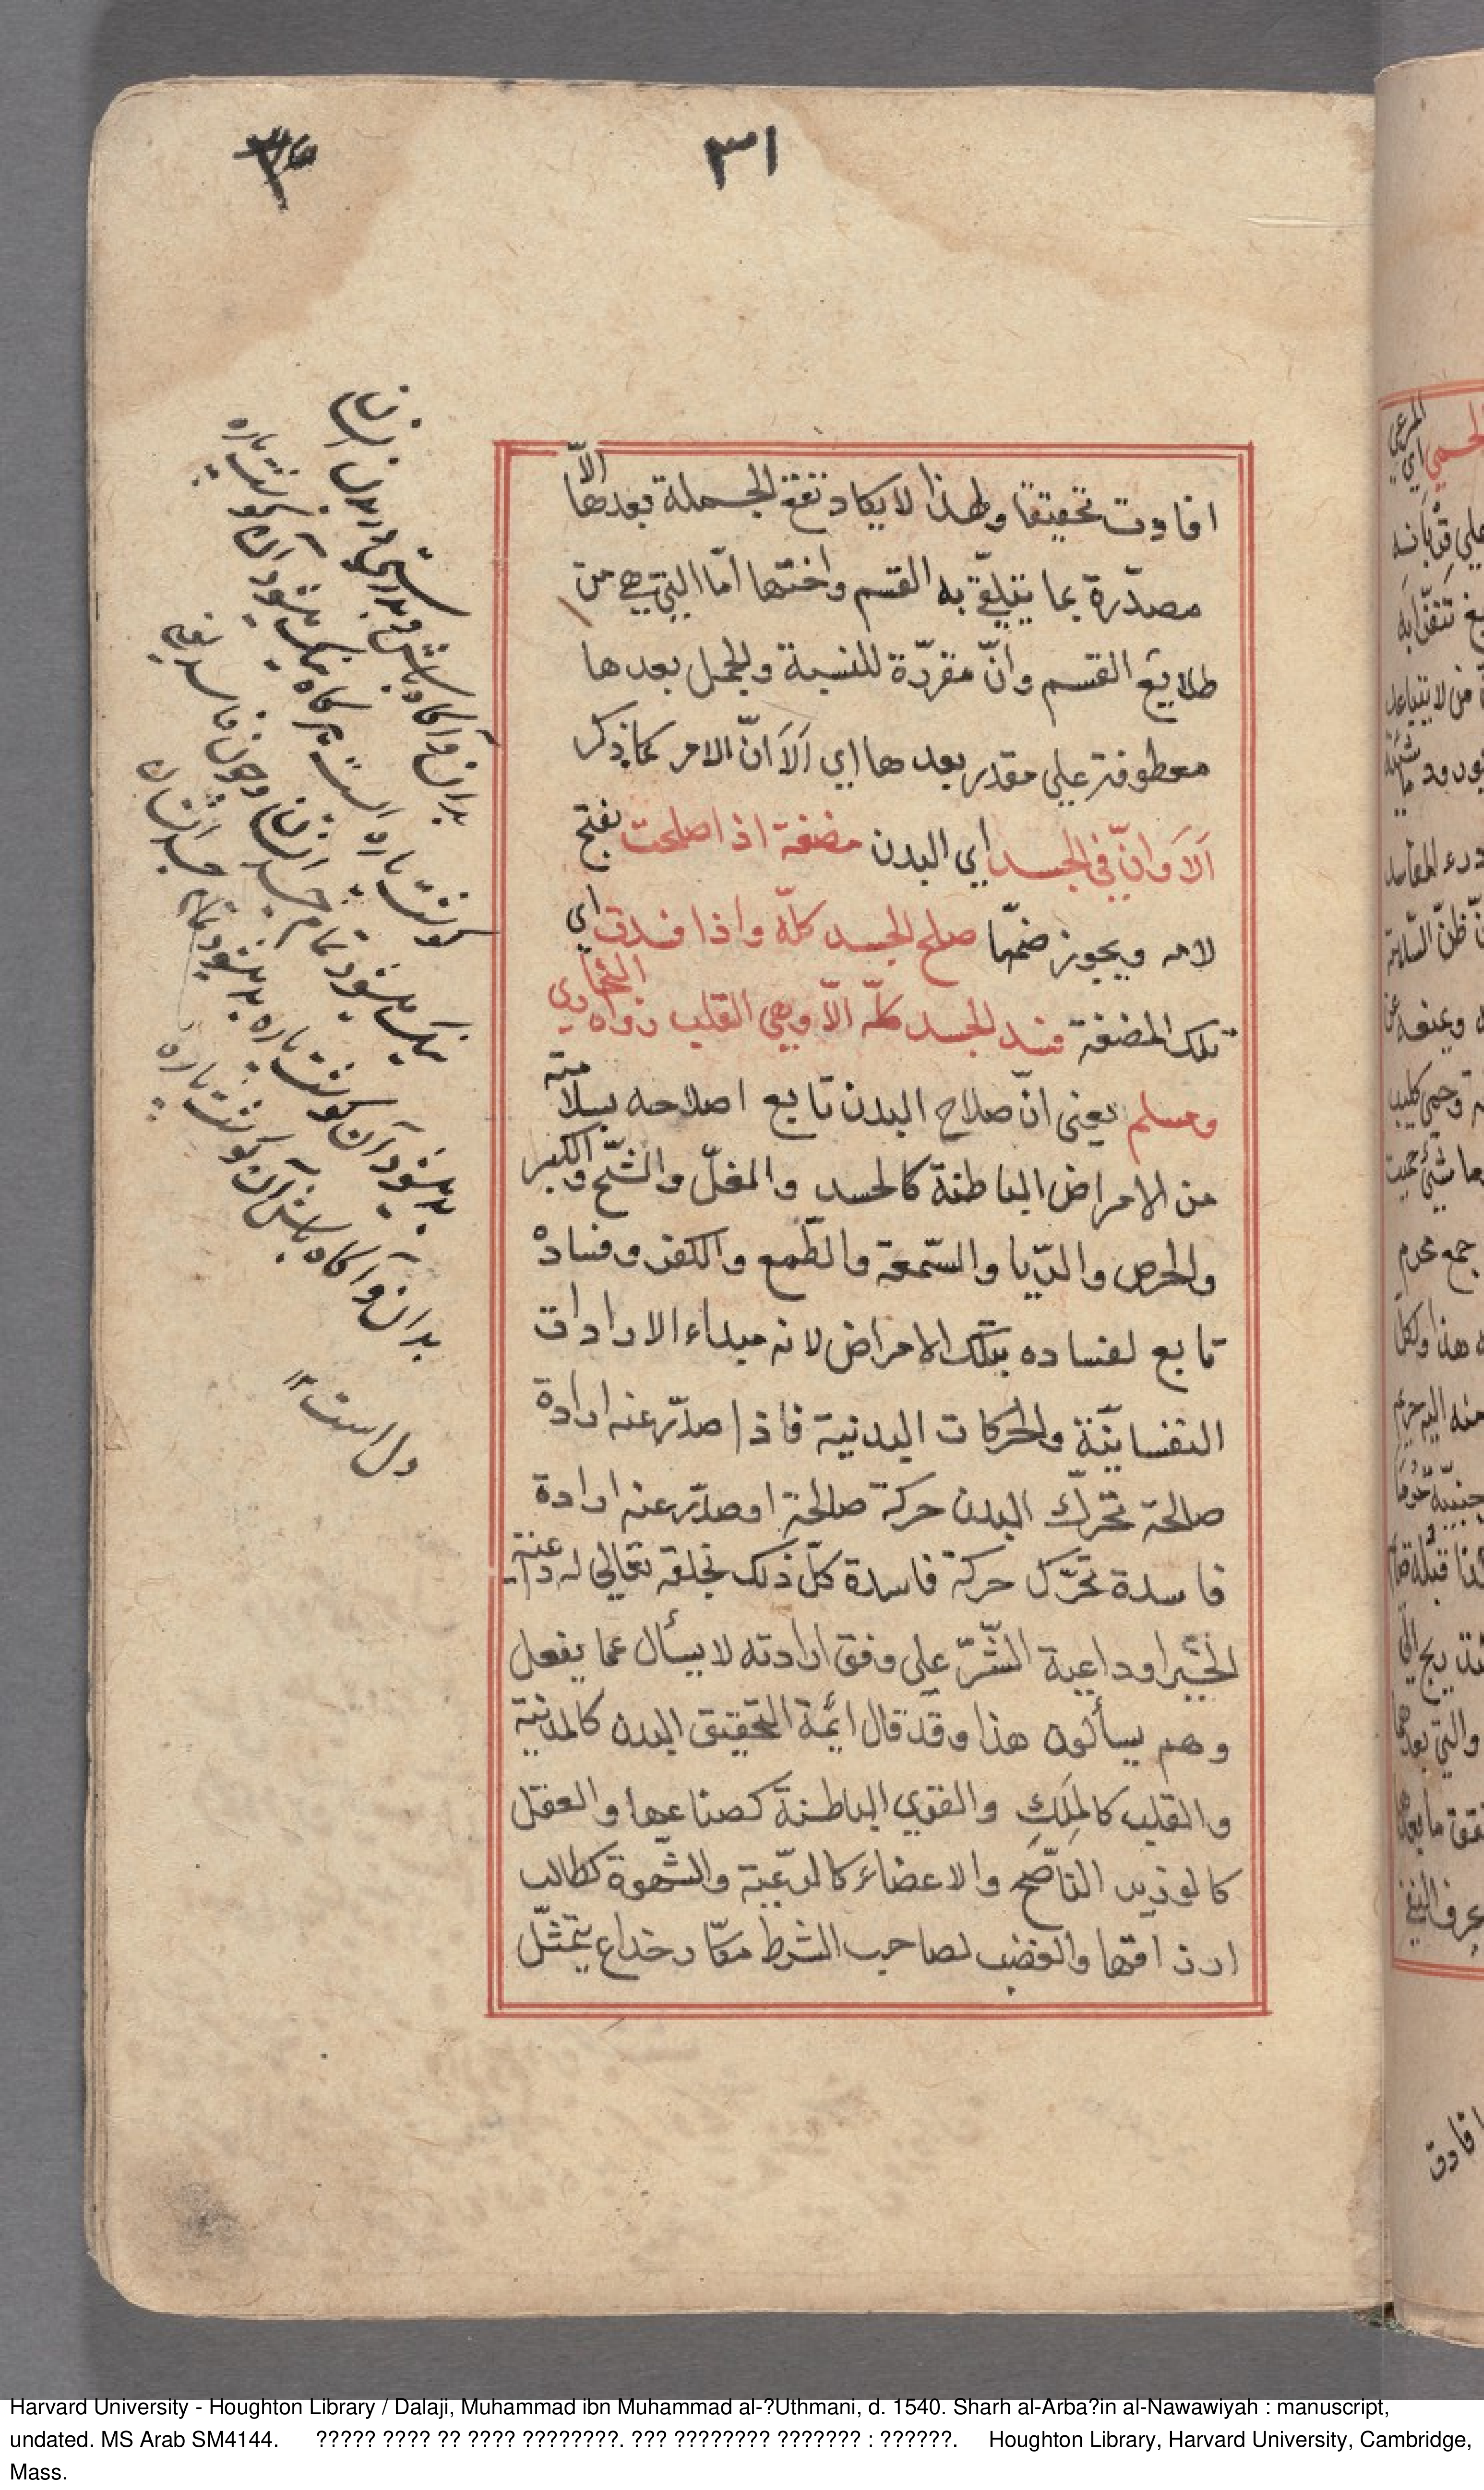 ٣١
افادت تحقيقا ولهذا لا يكاد تقع الجملة بعدها الّا
مصدّرة بما يتلقّي به القسم واختها امّا التي هي من
طلايع القسم وانّ مقررّة للنسبة والجمل بعدها
معطوفة علي مقدر بعدها اي اَلاَ انّ الامر كما ذكر
اَلاَ وَانّ في الجسد اي البدن مضغة اذا صلحت بفتح
لامه ويجوز ضمّها صلح الجسد كلّه واذا فسدت اي
تلك المضغة فسد الجسد كلّه الّا وهي القلب رواه البخاري
ومسلم يعني انّ صلاح البدن تابع اصلاحه بسلامته
من الامراض الباطنة كالحسد والغلّ والشّح والكبر
والحرص والرّيا والسّمعة والطّمع والكفر وفساده
تابع لفساده بتلك الامراض لانه مبداء الارادات
النفسانيّة والحركات البدنية فاذا صدر عنه ارادة
صالحة تحرّك البدن حركة صالحة او صدر عنه ارادة
فاسدة تحرّك حركة فاسدة كلّ ذلك بخلقه تعالي له داعية
الخير او داعية الشّرّ علي وفق ارادته لا يسأل عما يفعل
وهم يسألون هذا وقد قال ائمة التحقيق البدن كالمدينة
والقلب كالمَلِكِ والقوي الباطنة كصناعها والعقل
كالوزير النّاصح والاعضاء كالرعّية والشّهوة كطالب
ارزاقها والغضب لصاحب الشرط مكّار خداع يتمثّل
بدان وآكاه باش وبدرستي در بدن انسان
كوشت پاره است هركاه نيك ميشود آن كوشت پاره
نيك ميشود تمام جسد انسان وچون فاسد يعني
بد ميشود آن كوشت پاره بد ميشود تمام جسد انسان
بدان وآكاه باش آن كوشت پاره
دل است
افادت
Harvard University - Houghton Library / Dalaji, Muhammad ibn Muhammad al-?Uthmani, d. 1540. Sharh al-Arba?in al-Nawawiyah : manuscript,
undated. MS Arab SM4144. ????? ???? ?? ???? ????????. ??? ???????? ??????? : ??????. Houghton Library, Harvard University, Cambridge,
Mass.